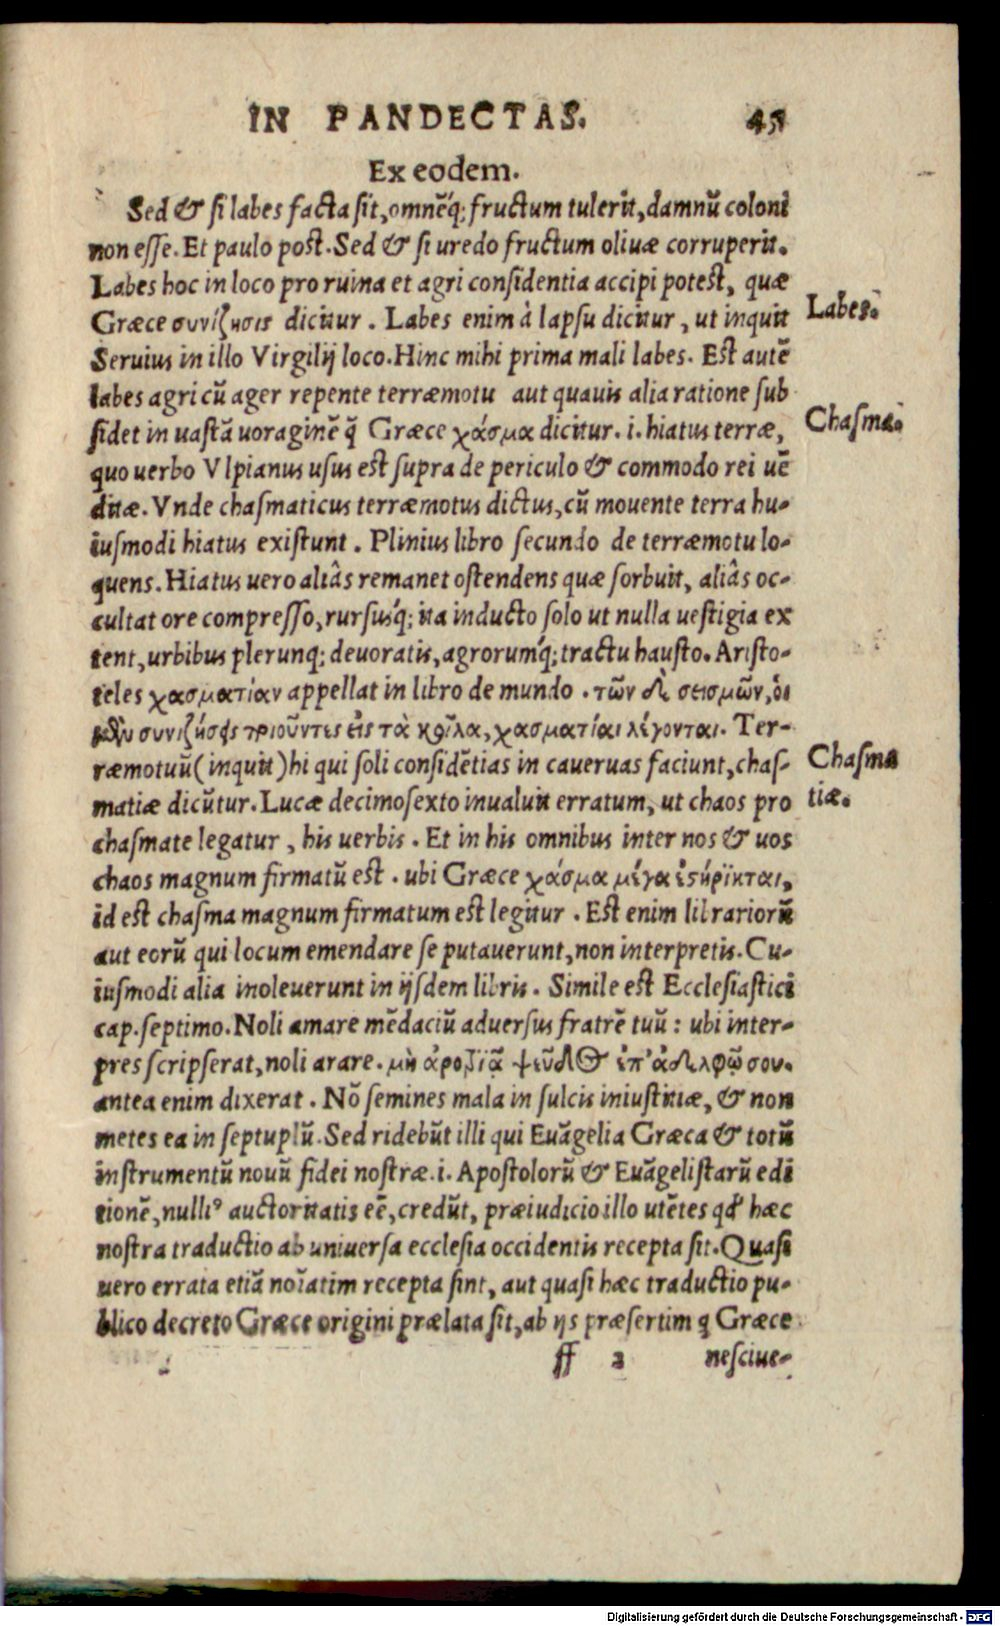 IN PANDECTAS. 45
Ex eodem.
Sed & si labes facta sit, omnēq́; fructum tulerit, damnū coloni
non esse. Et paulo post. Sed & si uredo fructum olivæ corruperit.
Labes hoc in loco pro ruina et agri considentia accipi potest, quæ
Græce συνίζησις dicitur. Labes enim à lapsu dicitur, ut inquit
Labes.
Servius in illo Virgilij loco. Hinc mihi prima mali labes. Est autē
labes agri cū ager repente terræmotu aut quavis alia ratione sub
sidet in uastā uoraginē q̄ Græce χάσμα dicitur. i. hiatus terræ,
Chasma.
quo uerbo Vlpianus usus est supra de periculo & commodo rei uē
ditæ. Vnde chasmaticus terræmotus dictus, cū movente terra hu-
iusmodi hiatus existunt. Plinius libro secundo de terræmotu lo-
quens. Hiatus uero aliâs remanet ostendens quæ sorbuit, aliâs oc-
cultat ore compresso, rursusq́; ita inducto solo ut nulla uestigia ex
tent, urbibus plerunq; devoratis, agrorumq́; tractu hausto. Aristo-
teles χασματίαν appellat in libro de mundo. τῶν δὲ σεισμῶν, οἱ
συνιζήσεις ποιοῦντες εἰς τὰ κοῖλα, χασματίαι λέγονται. Ter-
ræmotuū (inquit) hi qui soli considētias in caveruas faciunt, chas-
Chasma
matiæ dicūtur. Lucæ decimosexto invaluit erratum, ut chaos pro
tiæ.
chasmate legatur, his uerbis. Et in his omnibus inter nos & uos
chaos magnum firmatū est. ubi Græce χάσμα μέγα ἐστήρϊκται,
id est chasma magnum firmatum est legitur. Est enim librariorū
aut eorū qui locum emendare se putaverunt, non interpretis. Cu-
iusmodi alia inoleverunt in ijsdem libris. Simile est Ecclesiastici
cap. septimo. Noli amare mēdaciū adversus fratrē tuū: ubi inter-
pres scripserat, noli arare. μὴ ἀροτρία ψεῦδος ἐπ' ἀδελφῷ σου.
antea enim dixerat. Nō semines mala in sulcis iniustitiæ, & non
metes ea in septuplū. Sed ridebūt illi qui Euāgelia Græca & totū
instrumentū novū fidei nostræ. i. Apostolorū & Euāgelistarū edi
tionē, nulliꝰ auctoritatis eē, credūt, præiudicio illo utētes qđ hæc
nostra traductio ab universa ecclesia occidentis recepta sit. Quasi
uero errata etiā noīatim recepta sint, aut quasi hæc traductio pu-
blico decreto Græce origini prælata sit, ab ijs præsertim q Græce
ff 2 nescive-
Digitalisierung gefördert durch die Deutsche Forschungsgemeinschaft - DFG